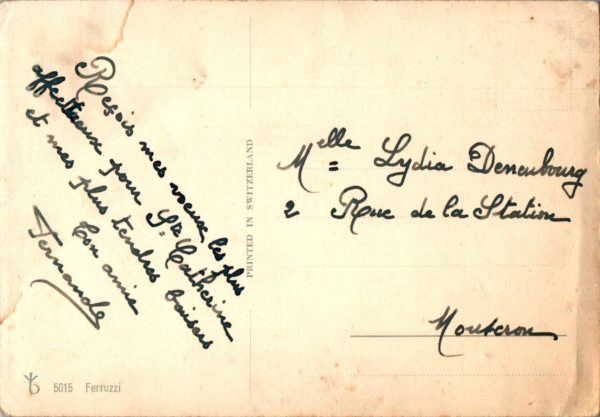 Reçois mes voeux les plus
affectueux pour Ste Catherine
et mes plus tendres baisers
Ton amie
Fernande
PRINTED IN SWITZERLAND
Melle Lydia Deneubourg
2 Rue de la Station
Mouscron
5015 Ferruzzi